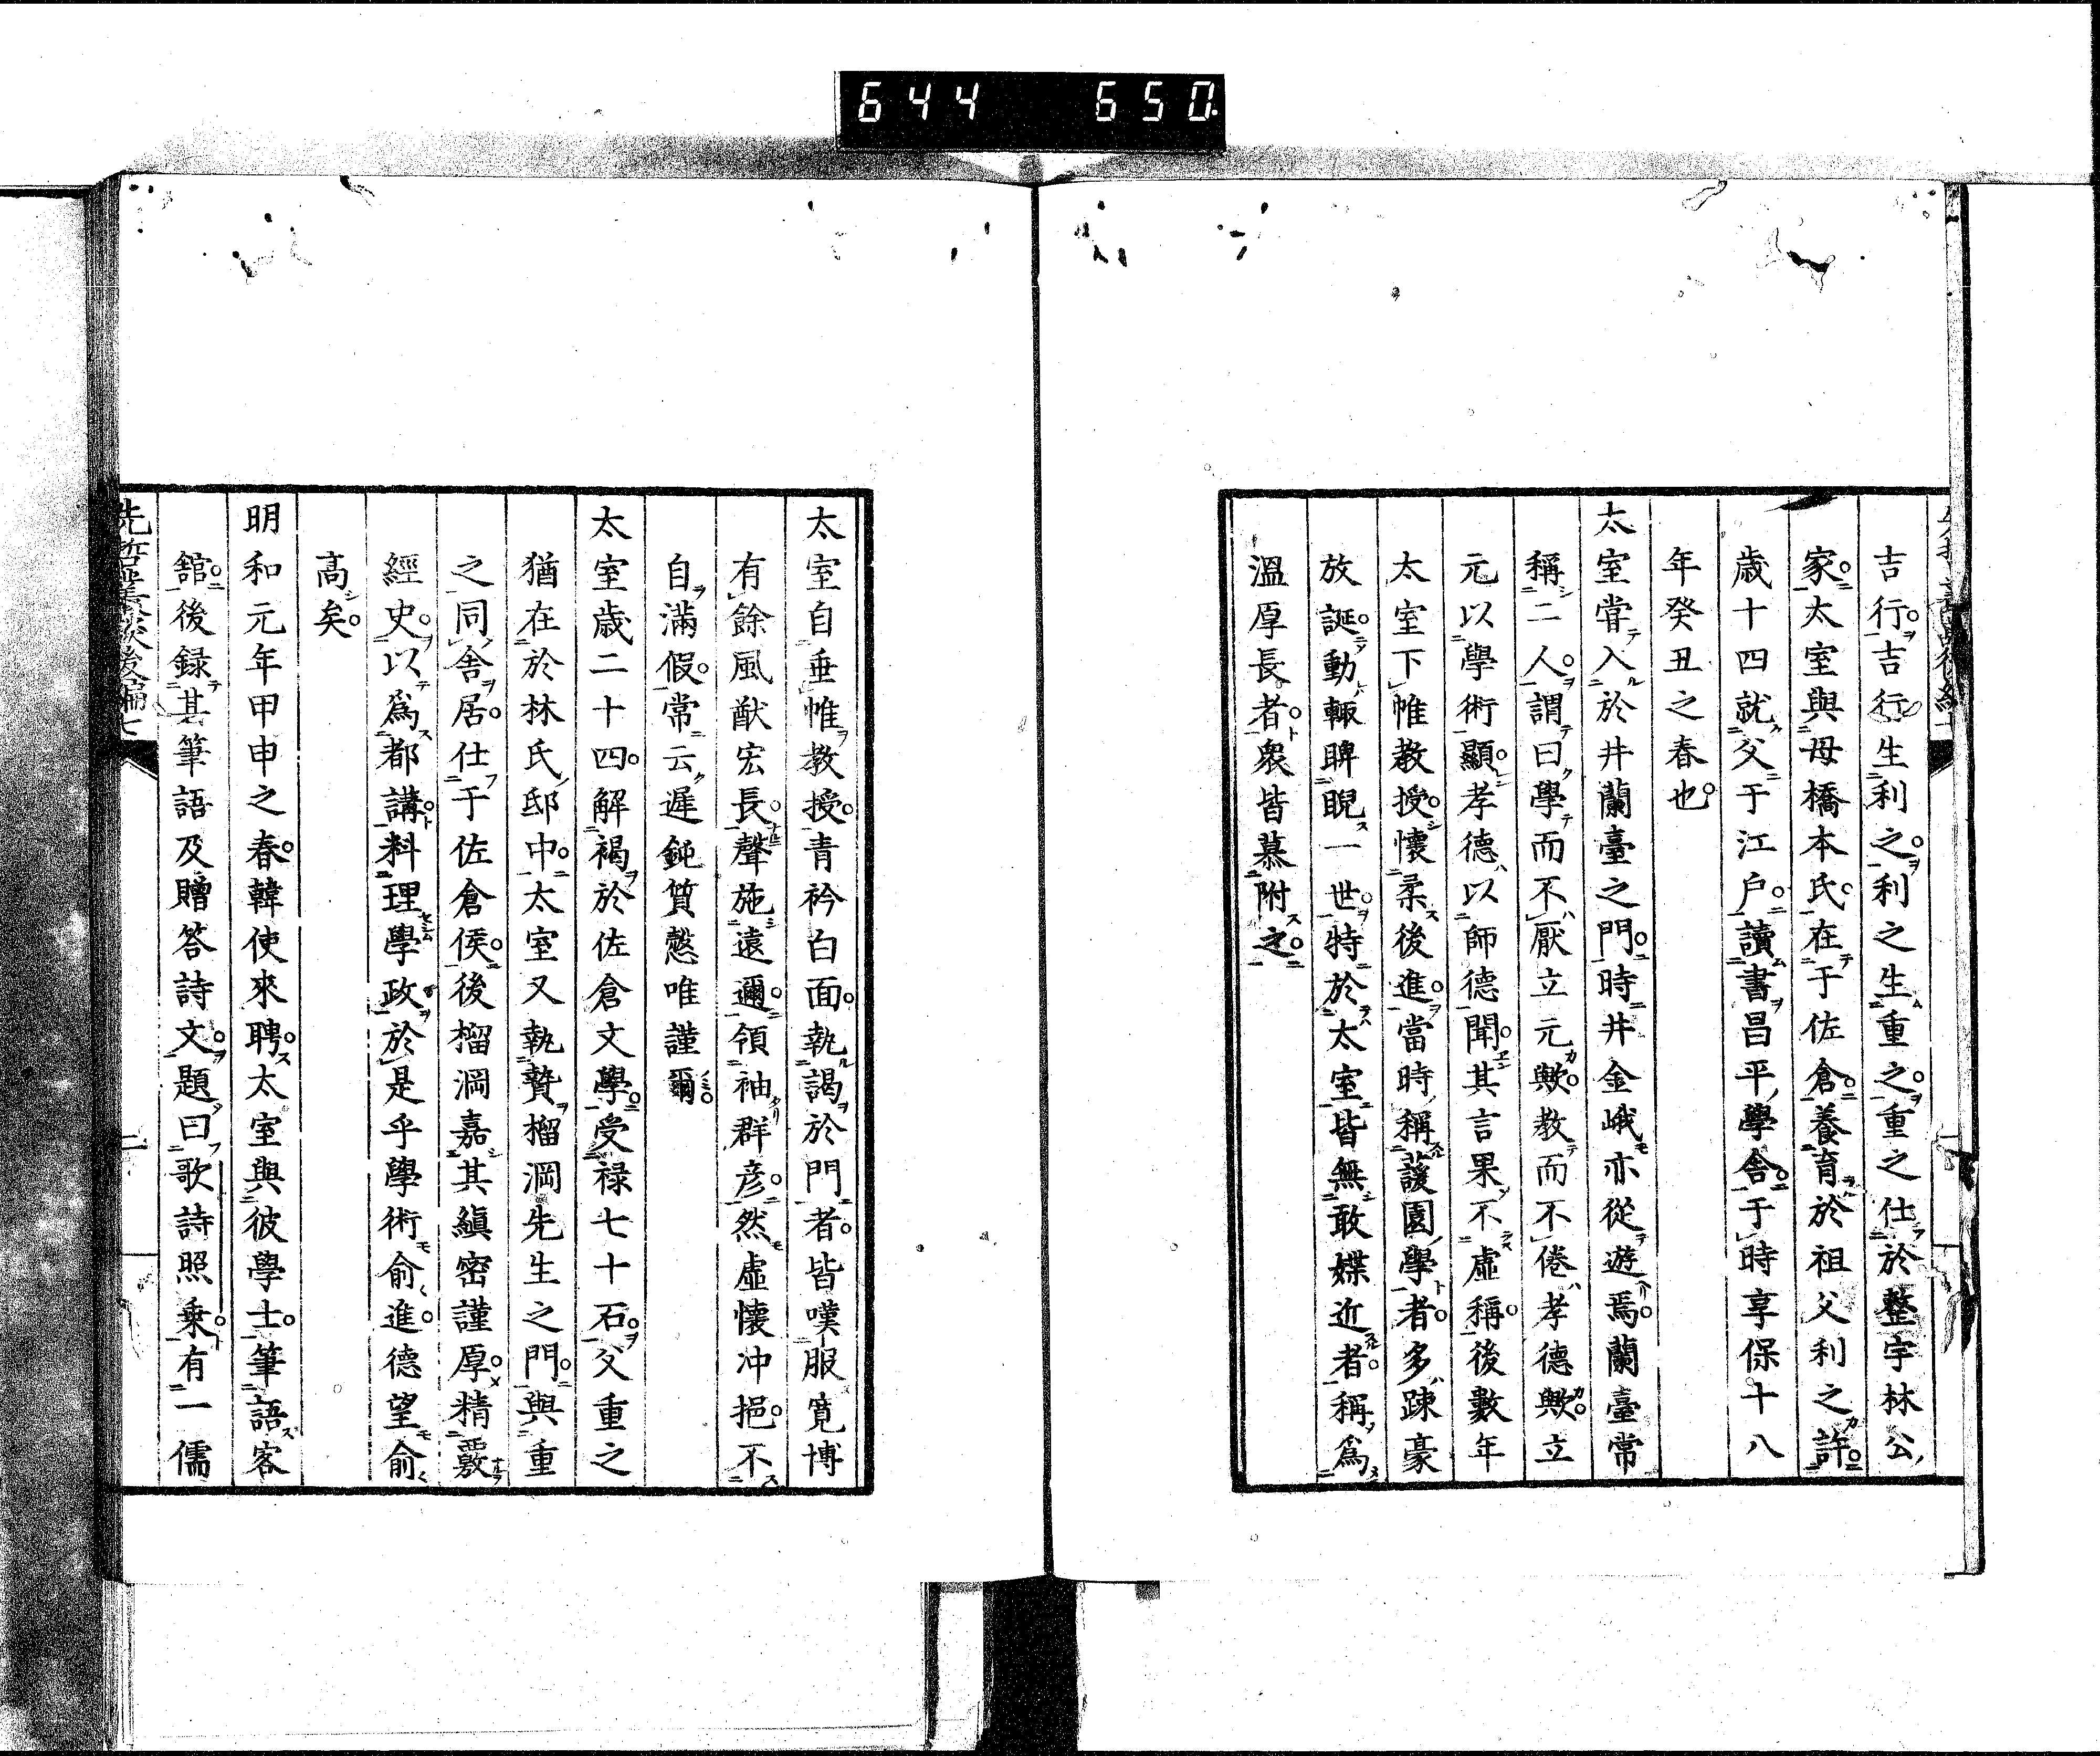 644 650
吉行吉行生利之利之生重之重之仕於整宇林公
家太室與母橋本氏在于佐倉養育於祖父利之許
歳十四就父于江戸讀書昌平學舍于時享保十八
年癸丑之春也
太室甞入於井蘭臺之門時井金峨亦從遊焉蘭臺常
稱二人謂曰學而不厭立元歟教而不倦孝德歟立
元以學術顯孝德以師德聞其言果不虛稱後數年
太室下帷教授懷柔後進當時稱蘐園學者多踈豪
放誕動輙睥睨一世特於太室皆無敢媟近者稱爲
溫厚長者衆皆慕附之
太室自垂帷教授青衿白面執謁於門者皆嘆服寬博
有餘風猷宏長聲施遠邇領袖群彦然虛懷冲挹不
自滿假常云遲鈍質慤唯謹爾
太室歳二十四解褐於佐倉文學受禄七十石父重之
猶在於林氏邸中太室又執贄榴洞先生之門與重
之同舍居仕于佐倉侯後榴洞嘉其縝密謹厚精覈
經史以爲都講料理學政於是乎學術俞進德望俞
高矣
明和元年甲申之春韓使來聘太室與彼學士筆語客
舘後録其筆語及贈答詩文題曰歌詩照乗有一儒
先哲叢談後編七
二